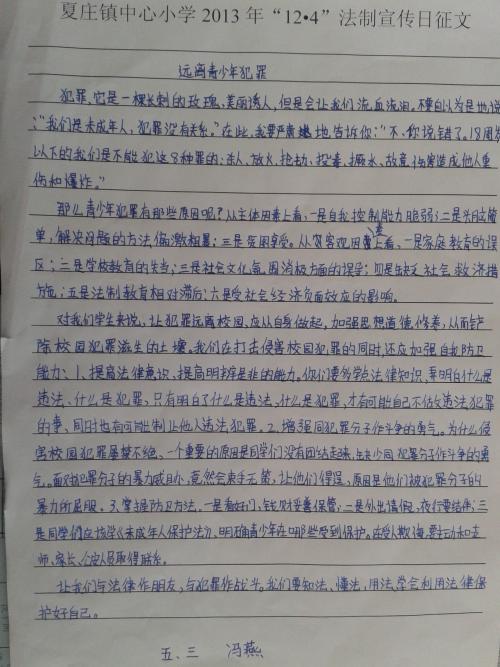 夏庄镇中心小学2013年“12•4”法制宣传日征文
远离青少年犯罪
犯罪,它是一棵长刺的玫瑰,美丽诱人,但是会让我们流血流泪。不要自认为是地说
:“我们是未成年人,犯罪没有关系。”在此,我要严肃地告诉你:“不,你说错了。18周岁
以下的我们是不能犯这8种罪的:杀人、放火、抢劫、投毒、故意伤害造成他人重
伤和爆炸。”
那么青少年犯罪有那些原因呢?从主体因素上看,一是自我控制能力脆弱;二是头脑简
单,解决问题的方法偏激粗暴;三是贪图享受。从客观因素上看、一是家庭教育的误
区;二是学校教育的失当;三是社会文化氛围消极方面的误导;四是缺乏社会救济措
施;五是法制教育相对滞后;六是受社会经济负面效应的影响。
对我们学生来说,让犯罪远离校园、应从自身做起,加强思想道德修养,从而铲
除校园犯罪滋生的土壤。我们在打击侵害校园犯罪的同时,还应加强自我防卫
能力:1、提高法律意识、提高明辨是非的能力。你们要多学点法律知识,弄明白什么是
违法、什么是犯罪,只有明白了什么是违法、什么是犯罪,才有可能自己不估做违法犯罪
的事、同时也有可能制止他人违法犯罪。2、增强同犯罪分子作斗争的勇气。为什么侵
害校园犯罪屡禁不绝、一个重要的原因是同学们没有团结起来,缺少同犯罪分子作斗争的勇
气。面对犯罪分子的暴力或自卫,竟然会束手无策,让他们得逞,原因是他们被犯罪分子的
暴力所屈服。3、掌握防卫方法。一是看好门,钱财妥善保管;二是外出请假,夜行要结伴;三
是同学们应该学《未成年人保护法》、明确青少年在哪些受到保护。在受人欺侮,要主动和老
师、家长、公安人员取得联系。
让我们与法律作朋友,与犯罪作战斗。我们要知法、懂法,用法,学会利用法律保
护好自己。
五、三 冯燕